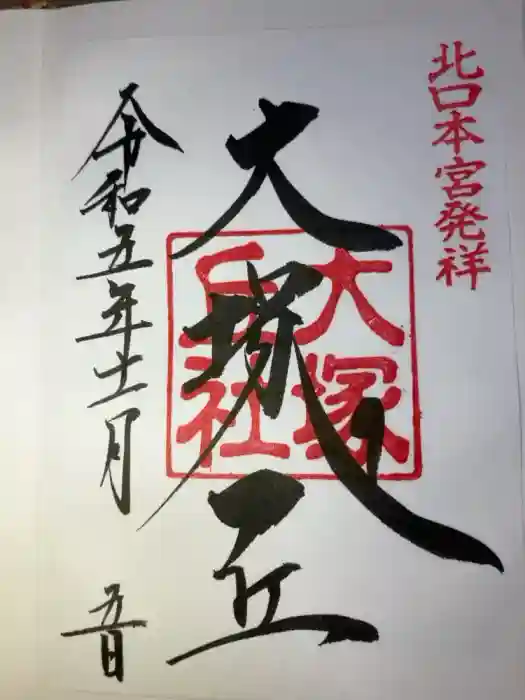 北口本宮発祥
大塚丘
大塚
丘社
令和五年十一月 五日